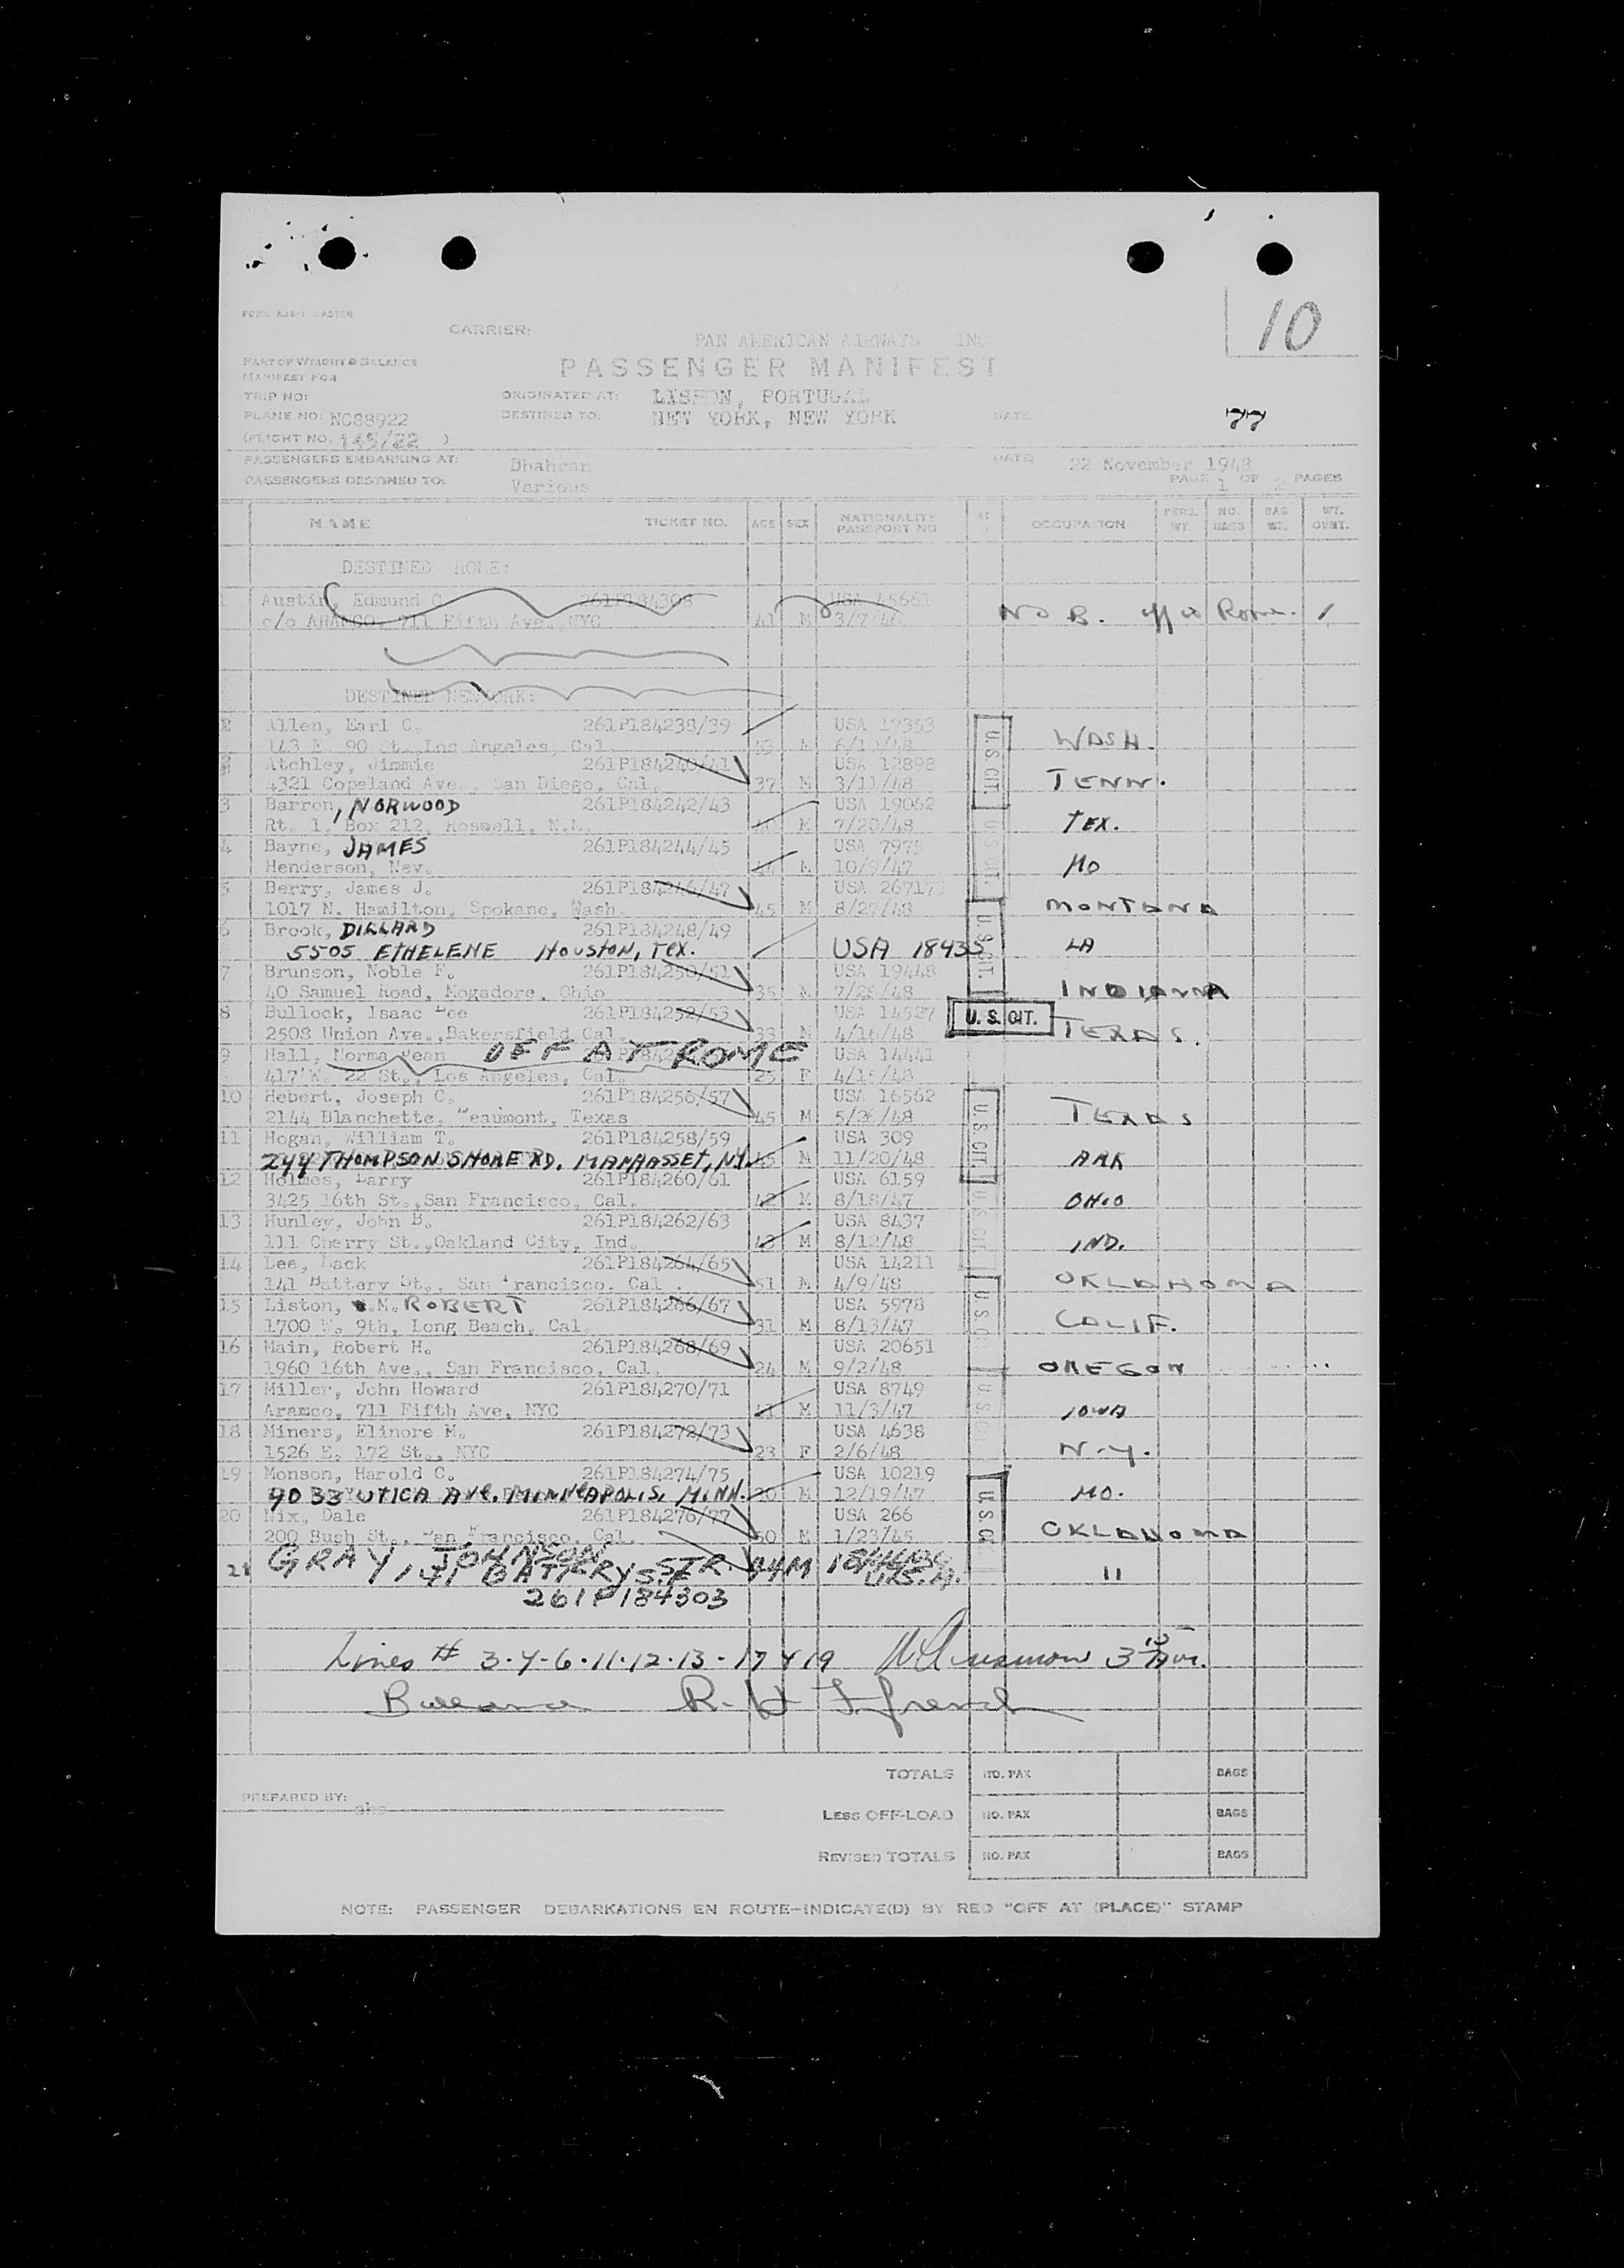 10
CARRIER: PAN AMERICAN AIRWAYS INC
PART OF WEIGHT & BALANCE
MANIFEST FOR
PASSENGER MANIFEST
TRIP NO:
ORIGINATED AT: LISBON, PORTUGAL
PLANE NO: NC88922
DESTINED TO: NEW YORK, NEW YORK
DATE
77
(FLIGHT NO. 145/22 )
PASSENGERS EMBARKING AT: Dhahran
DATE: 22 November 1948
PASSENGERS DESTINED TO: Various
PAGE 1 OF 2 PAGES
NAME TICKET NO. AGE SEX NATIONALITY PASSPORT NO OCCUPATION PERS. WT. NO. BAGS BAG WT. WT. OVMT.
DESTINED ROME:
1 Austin, Edmund C. 261P184308 USA 45661
c/o ARAMCO, 711 Fifth Ave., NYC 41 M 3/7/46 NO B. off at Rome.
DESTINED NEW YORK:
2 Allen, Earl C. 261P184238/39 USA 17353
143 E. 90 St., Los Angeles, Cal. 53 M 6/10/48 WASH.
Atchley, Jimmie 261P184240/41 USA 12898
4321 Copeland Ave., San Diego, Cal. 37 M 3/11/48 TENN.
3 Barron, NORWOOD 261P184242/43 USA 19062
Rt. 1, Box 212, Roswell, N.M. M 7/20/48 TEX.
4 Bayne, JAMES 261P184244/45 USA 7975
Henderson, Nev. M 10/9/47 MO
5 Berry, James J. 261P184246/47 USA 26717
1017 N. Hamilton, Spokane, Wash. 45 M 8/27/48 MONTANA
6 Brook, DILLARD 261P184248/49
5505 ETHELENE HOUSTON, TEX. USA 18435 LA
7 Brunson, Noble F. 261P184250/51 USA 19448
40 Samuel Road, Mogadore, Ohio 35 M 7/28/48 INDIANNA
8 Bullock, Isaac Dee 261P184252/53 USA 14527 U.S. CIT.
2508 Union Ave., Bakersfield Cal 33 M 4/16/48 TEXAS.
9 Hall, Norma Jean OFF AT ROME USA 14441
417 W. 22 St., Los Angeles, Cal. 25 F 4/15/48
10 Hebert, Joseph C. 261P184256/57 USA 16562
2144 Blanchette, Beaumont, Texas 45 M 5/26/48 TEXAS
11 Hogan, William T. 261P184258/59 USA 309
244 THOMPSON SHORE RD. MANHASSET, NY 45 M 11/20/48 ARK
12 Holmes, Larry 261P184260/61 USA 6159
3425 16th St., San Francisco, Cal. 42 M 8/18/47 OHIO
13 Hunley, John B. 261P184262/63 USA 8437
111 Cherry St., Oakland City, Ind. 43 M 8/12/48 IND.
14 Lee, Jack 261P184264/65 USA 14211
141 Battery St., San Francisco, Cal. 51 M 4/9/48 OKLAHOMA
15 Liston, M. ROBERT 261P184266/67 USA 5978
1700 W. 9th, Long Beach, Cal. 31 M 8/13/47 CALIF.
16 Main, Robert H. 261P184268/69 USA 20651
1960 16th Ave., San Francisco, Cal. 24 M 9/2/48 OREGON
17 Miller, John Howard 261P184270/71 USA 8749
Aramco, 711 Fifth Ave, NYC 41 M 11/3/47 IOWA
18 Miners, Elinore M. 261P184272/73 USA 4638
1526 E. 172 St., NYC 23 F 2/6/48 N.Y.
19 Monson, Harold C. 261P184274/75 USA 10219
4033 UTICA AVE. MINNEAPOLIS, MINN. 30 M 12/19/47 MO.
20 Nix, Dale 261P184276/77 USA 266
200 Bush St., San Francisco, Cal. 50 M 1/23/45 OKLAHOMA
21 GRAY, JOHNSON 44 M U.S.A. 11
BATTERY STR.
261P184303
Lines # 3-4-6-11-12-13-17 & 19
Balance
TOTALS NO. PAX BAGS
PREPARED BY:
LESS OFF-LOAD NO. PAX BAGS
REVISED TOTALS NO. PAX BAGS
NOTE: PASSENGER DEBARKATIONS EN ROUTE-INDICATE(D) BY RED "OFF AT (PLACE)" STAMP